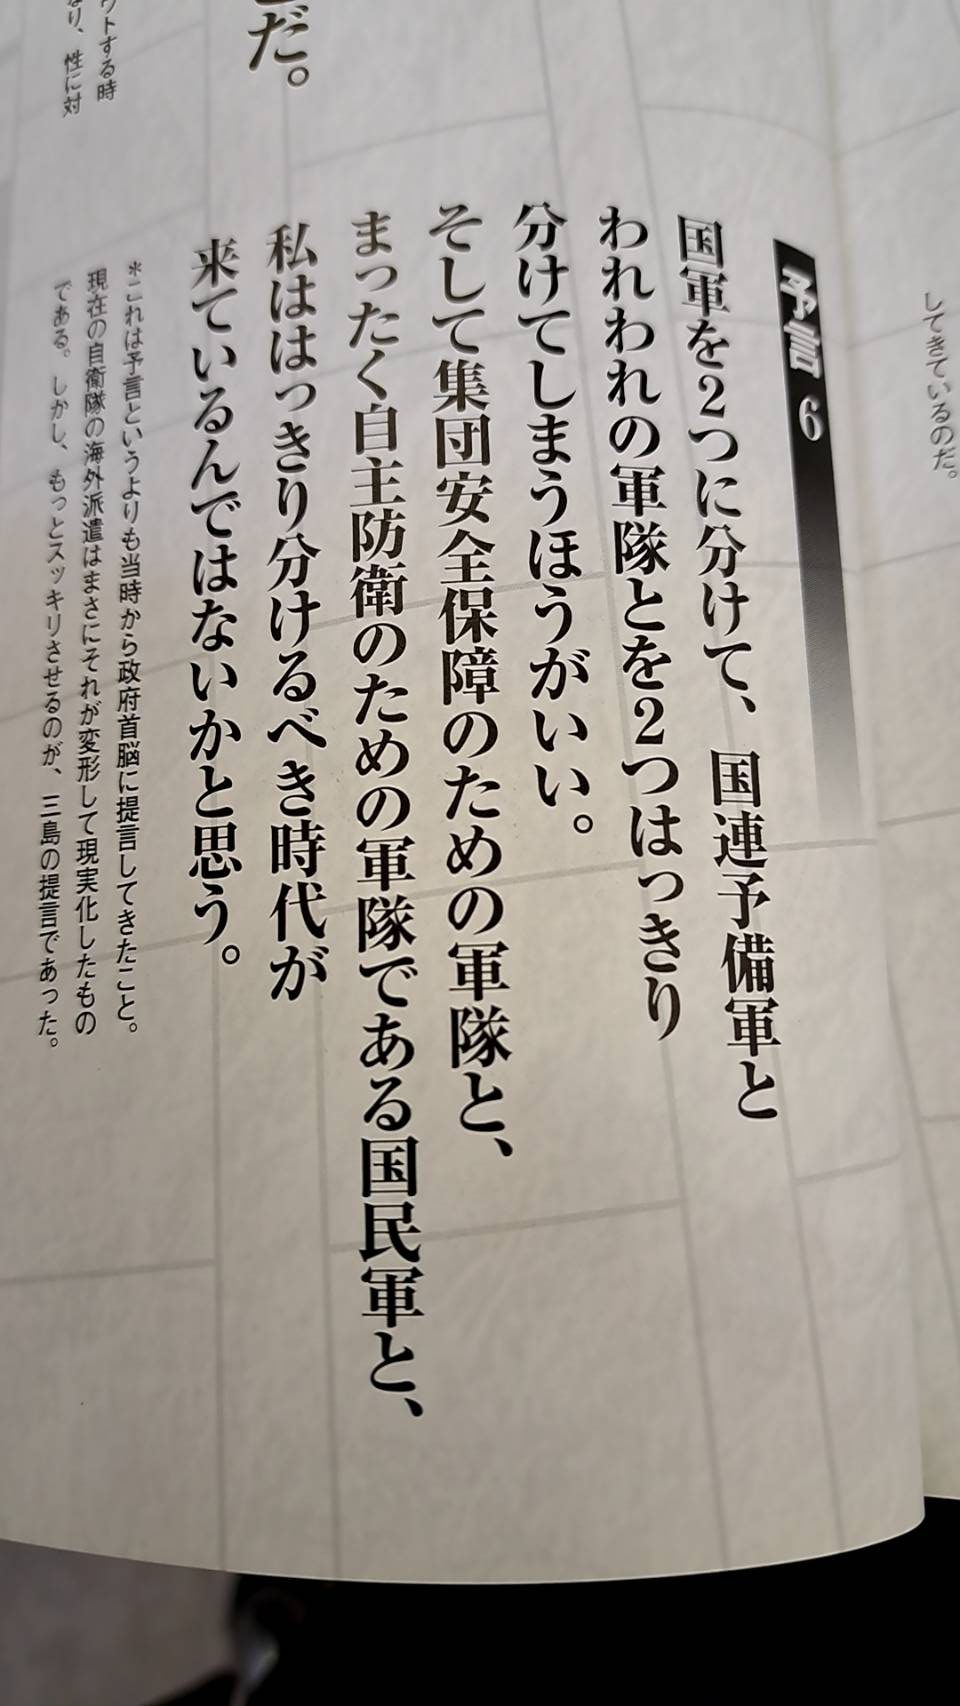 してきているのだ。
予言 6
国軍を2つに分けて、国連予備軍と
われわれの軍隊とを2つはっきり
分けてしまうほうがいい。
そして集団安全保障のための軍隊と、
まったく自主防衛のための軍隊である国民軍と、
私ははっきり分けるべき時代が
来ているんではないかと思う。
*これは予言というよりも当時から政府首脳に提言してきたこと。
現在の自衛隊の海外派遣はまさにそれが変形して現実化したもの
である。しかし、もっとスッキリさせるのが、三島の提言であった。
だ。
ウトする時
なり、性に対